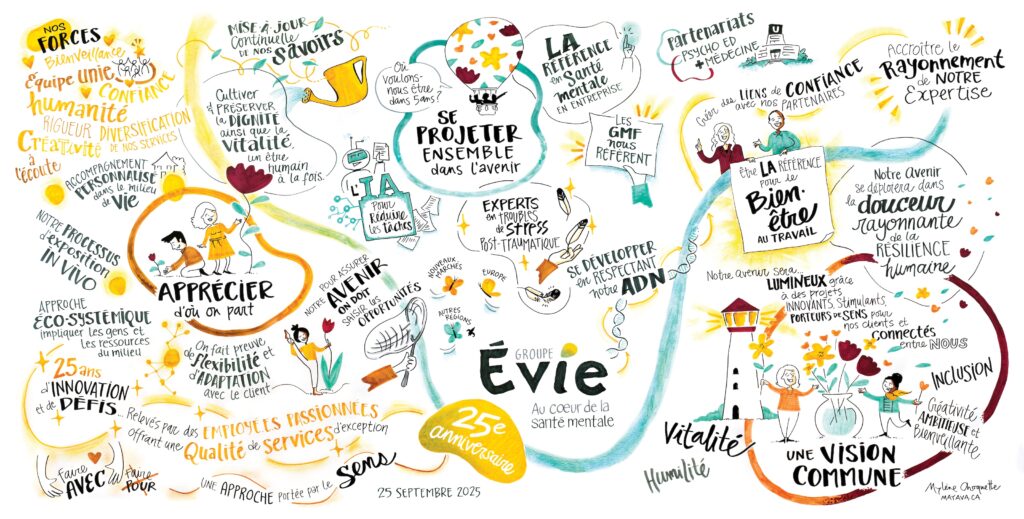 NOS
FORCES
Bienveillance
Équipe unie
CONFIANCE
humanité
RIGUEUR DIVERSIFICATION
DE NOS SERVICES!
Créativité
à
l'écoute
ACCOMPAGNEMENT
PERSONNALISÉ
dans le milieu
de vie
NOTRE PROCESSUS
d'exposition
IN VIVO
MISE-À-JOUR
Continuelle
DE NOS SAVOIRS
Cultiver
et PRÉSERVER
la DIGNITÉ
ainsi que la
VITALITÉ,
un être
humain
à la fois.
APPRÉCIER
d'où on part
APPROCHE
ÉCO-SYSTÉMIQUE
impliquer les gens et
les ressources
du milieu
25 ans
d'INNOVATION
et de DÉFIS...
Relevés par des EMPLOYÉES PASSIONNÉES
offrant une Qualité de services d'exception
On fait preuve
de flexibilité et
d'ADAPTATION
avec le client
Faire
AVEC
Faire
POUR
UNE APPROCHE portée par le Sens
Où
voulons-
nous être
dans 5 ans?
SE
PROJETER
ENSEMBLE
dans l'avenir
L'IA
pour
Réduire
les tâches
LA
RÉFÉRENCE
en Santé
mentale
EN ENTREPRISE
LES
GMF
nous
RÉFÈRENT
EXPERTS
en TROUBLES
de STRESS
Post-TRAUMATIQUE
POUR ASSURER
NOTRE AVENIR
ON DOIT
SAISIR LES
OPPORTUNITÉS
NOUVEAUX
MARCHÉS
EUROPE
AUTRES
RÉGIONS
SE DÉVELOPPER
en RESPECTANT
notre ADN
GROUPE
Évie
Au coeur de la
santé mentale
25e
anniversaire
25 SEPTEMBRE 2025
Partenariats
PSYCHO ED
+ MÉDECINE
U
Créer des LIENS de CONFIANCE
avec nos PARTENAIRES
ACCROÎTRE le
RAYONNEMENT
de NOTRE
EXPERTISE
être LA RÉFÉRENCE
pour le
Bien-
être
AU TRAVAIL
Notre avenir
se déploiera dans
la douceur
rayonnante
de la
RÉSILIENCE
humaine
Notre avenir sera...
LUMINEUX grâce
à des projets
INNOVANTS, stimulants,
PORTEURS DE SENS pour
nos clients et
connectés
entre NOUS
INCLUSION
Créativité
AMBITIEUSE et
Bienveillante
Vitalité
Humilité
UNE VISION
COMMUNE
Mylène Choquette
MAYAVA.CA